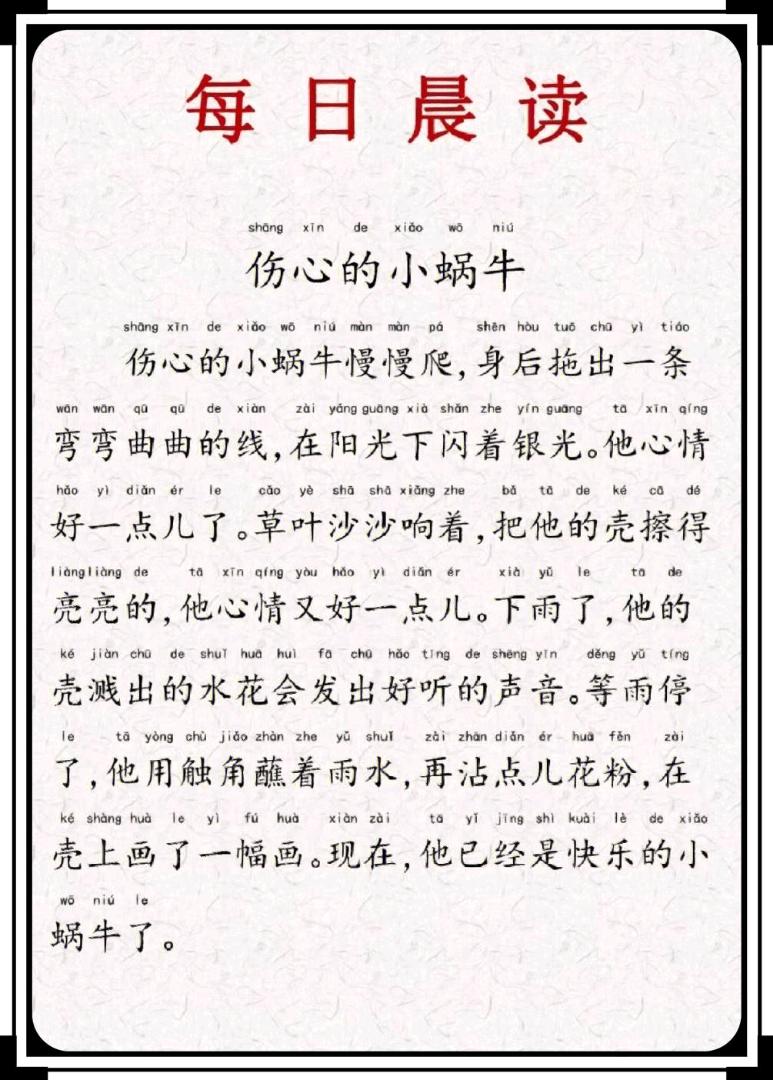 每日晨读
shāng xīn de xiǎo wō niú
伤心的小蜗牛
shāng xīn de xiǎo wō niú màn màn pá shēn hòu tuō chū yì tiáo
伤心的小蜗牛慢慢爬，身后拖出一条
wān wān qū qū de xiàn zài yáng guāng xià shǎn zhe yín guāng tā xīn qíng
弯弯曲曲的线，在阳光下闪着银光。他心情
hǎo yì diǎn ér le cǎo yè shā shā xiǎng zhe bǎ tā de ké cā dé
好一点儿了。草叶沙沙响着，把他的壳擦得
liàng liàng de tā xīn qíng yòu hǎo yì diǎn ér xià yǔ le tā de
亮亮的，他心情又好一点儿。下雨了，他的
ké jiàn chū de shuǐ huā huì fā chū hǎo tīng de shēng yīn děng yǔ tíng
壳溅出的水花会发出好听的声音。等雨停
le tā yòng chù jiǎo zhàn zhe yǔ shuǐ zài zhān diǎn ér huā fěn zài
了，他用触角蘸着雨水，再沾点儿花粉，在
ké shàng huà le yì fú huà xiàn zài tā yǐ jīng shì kuài lè de xiǎo
壳上画了一幅画。现在，他已经是快乐的小
wō niú le
蜗牛了。